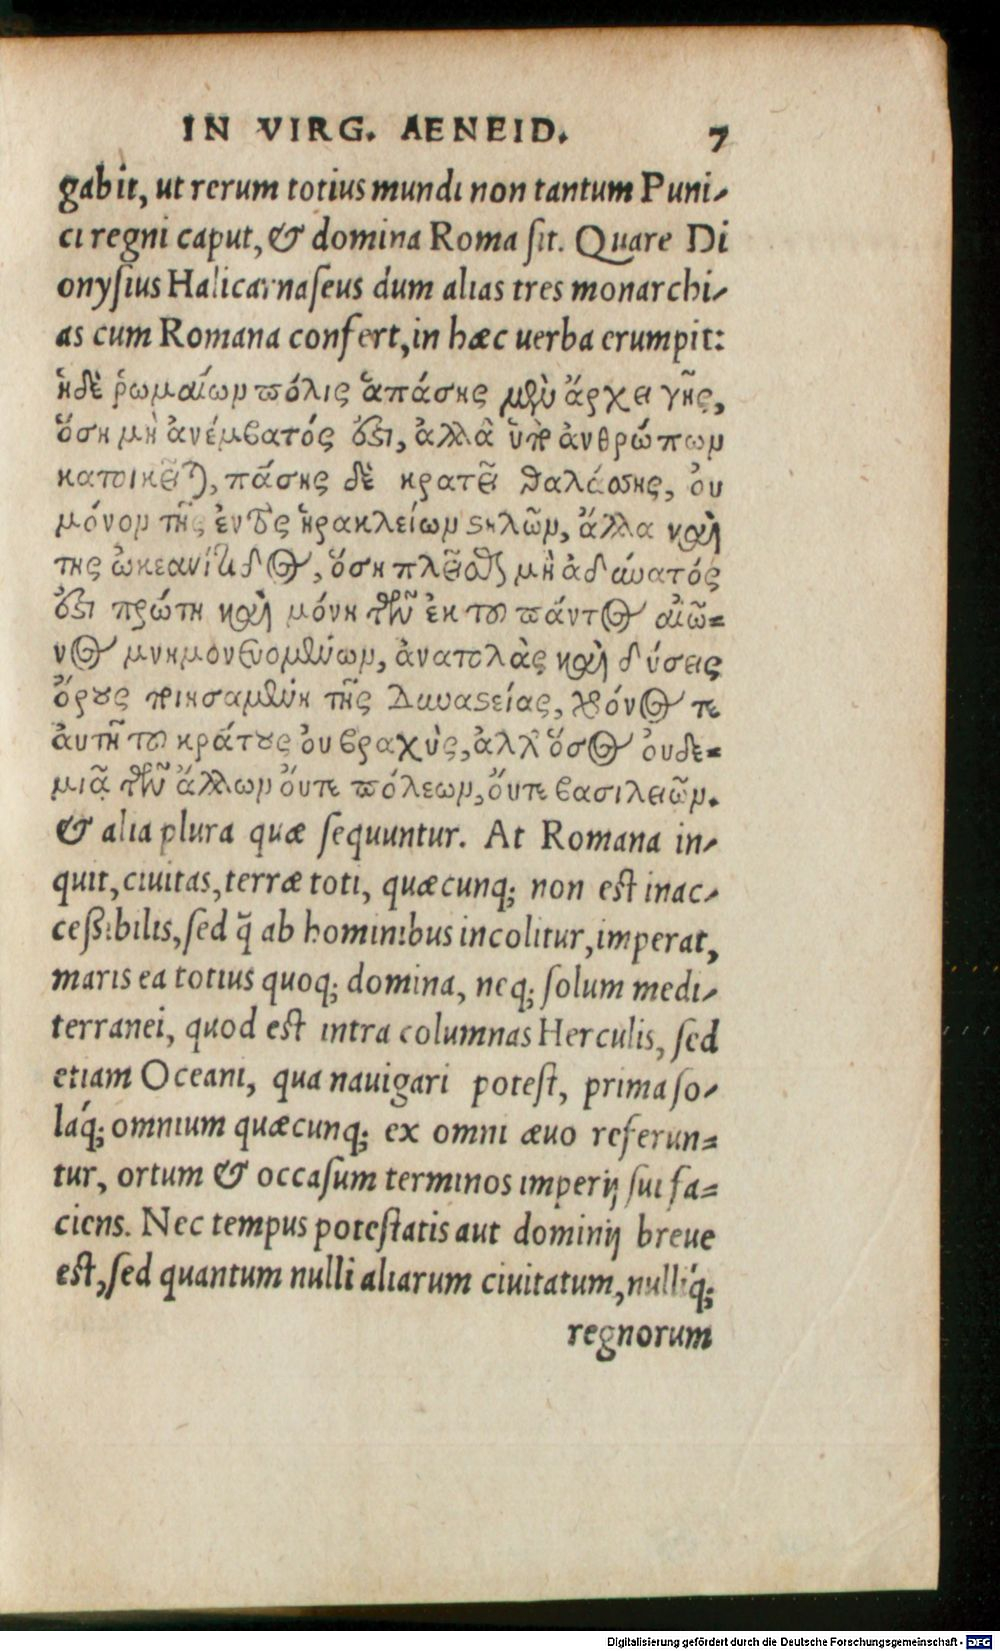 IN VIRG. AENEID. 7
gabit, ut rerum totius mundi non tantum Puni⸗
ci regni caput, & domina Roma ſit. Quare Di
onyſius Halicarnaſeus dum alias tres monarchi⸗
as cum Romana confert, in hæc uerba erumpit:
ἡδὲ ῥωμαίων πόλις ἁπάσης μὲν ἄρχει γῆς,
ὅση μὴ ἀνέμβατός ὅβι, ἀλλὰ ὑπ' ἀνθρώπων
κατοικεῖται, πάσης δὲ κρατεῖ θαλάσσης, ὀυ
μόνον τῆς ἐντὸς ἡρακλείων στηλῶν, ἄλλα καὶ
της ὠκεανίτιδος, ὅση πλεῖσθαι μὴ ἀδύνατός
ὅβι πρώτη καὶ μόνη τῶν ἐκ του πάντος αἰῶ⸗
νος μνημονευομένων, ἀνατολὰς καὶ δύσεις
ὅρους ποιησαμένη τῆς Δυναστείας, χρόνος τε
ἀυτῆ του κράτους ὀυ βραχὺς, ἀλλ' ὅσος ὀυδε⸗
μιᾷ τῶν ἄλλων ὄυτε πόλεων, ὄυτε βασιλειῶν.
& alia plura quæ ſequuntur. At Romana in⸗
quit, ciuitas, terræ toti, quæcunq; non eſt inac⸗
ceßibilis, ſed q̃ ab hominibus incolitur, imperat,
maris ea totius quoq; domina, neq; ſolum medi⸗
terranei, quod eſt intra columnas Herculis, ſed
etiam Oceani, qua nauigari poteſt, prima ſo⸗
láq; omnium quæcunq; ex omni æuo referun⸗
tur, ortum & occaſum terminos imperij ſui fa⸗
ciens. Nec tempus poteſtatis aut dominij breue
eſt, ſed quantum nulli aliarum ciuitatum, nulliq́;
regnorum
Digitalisierung gefördert durch die Deutsche Forschungsgemeinschaft - DFG